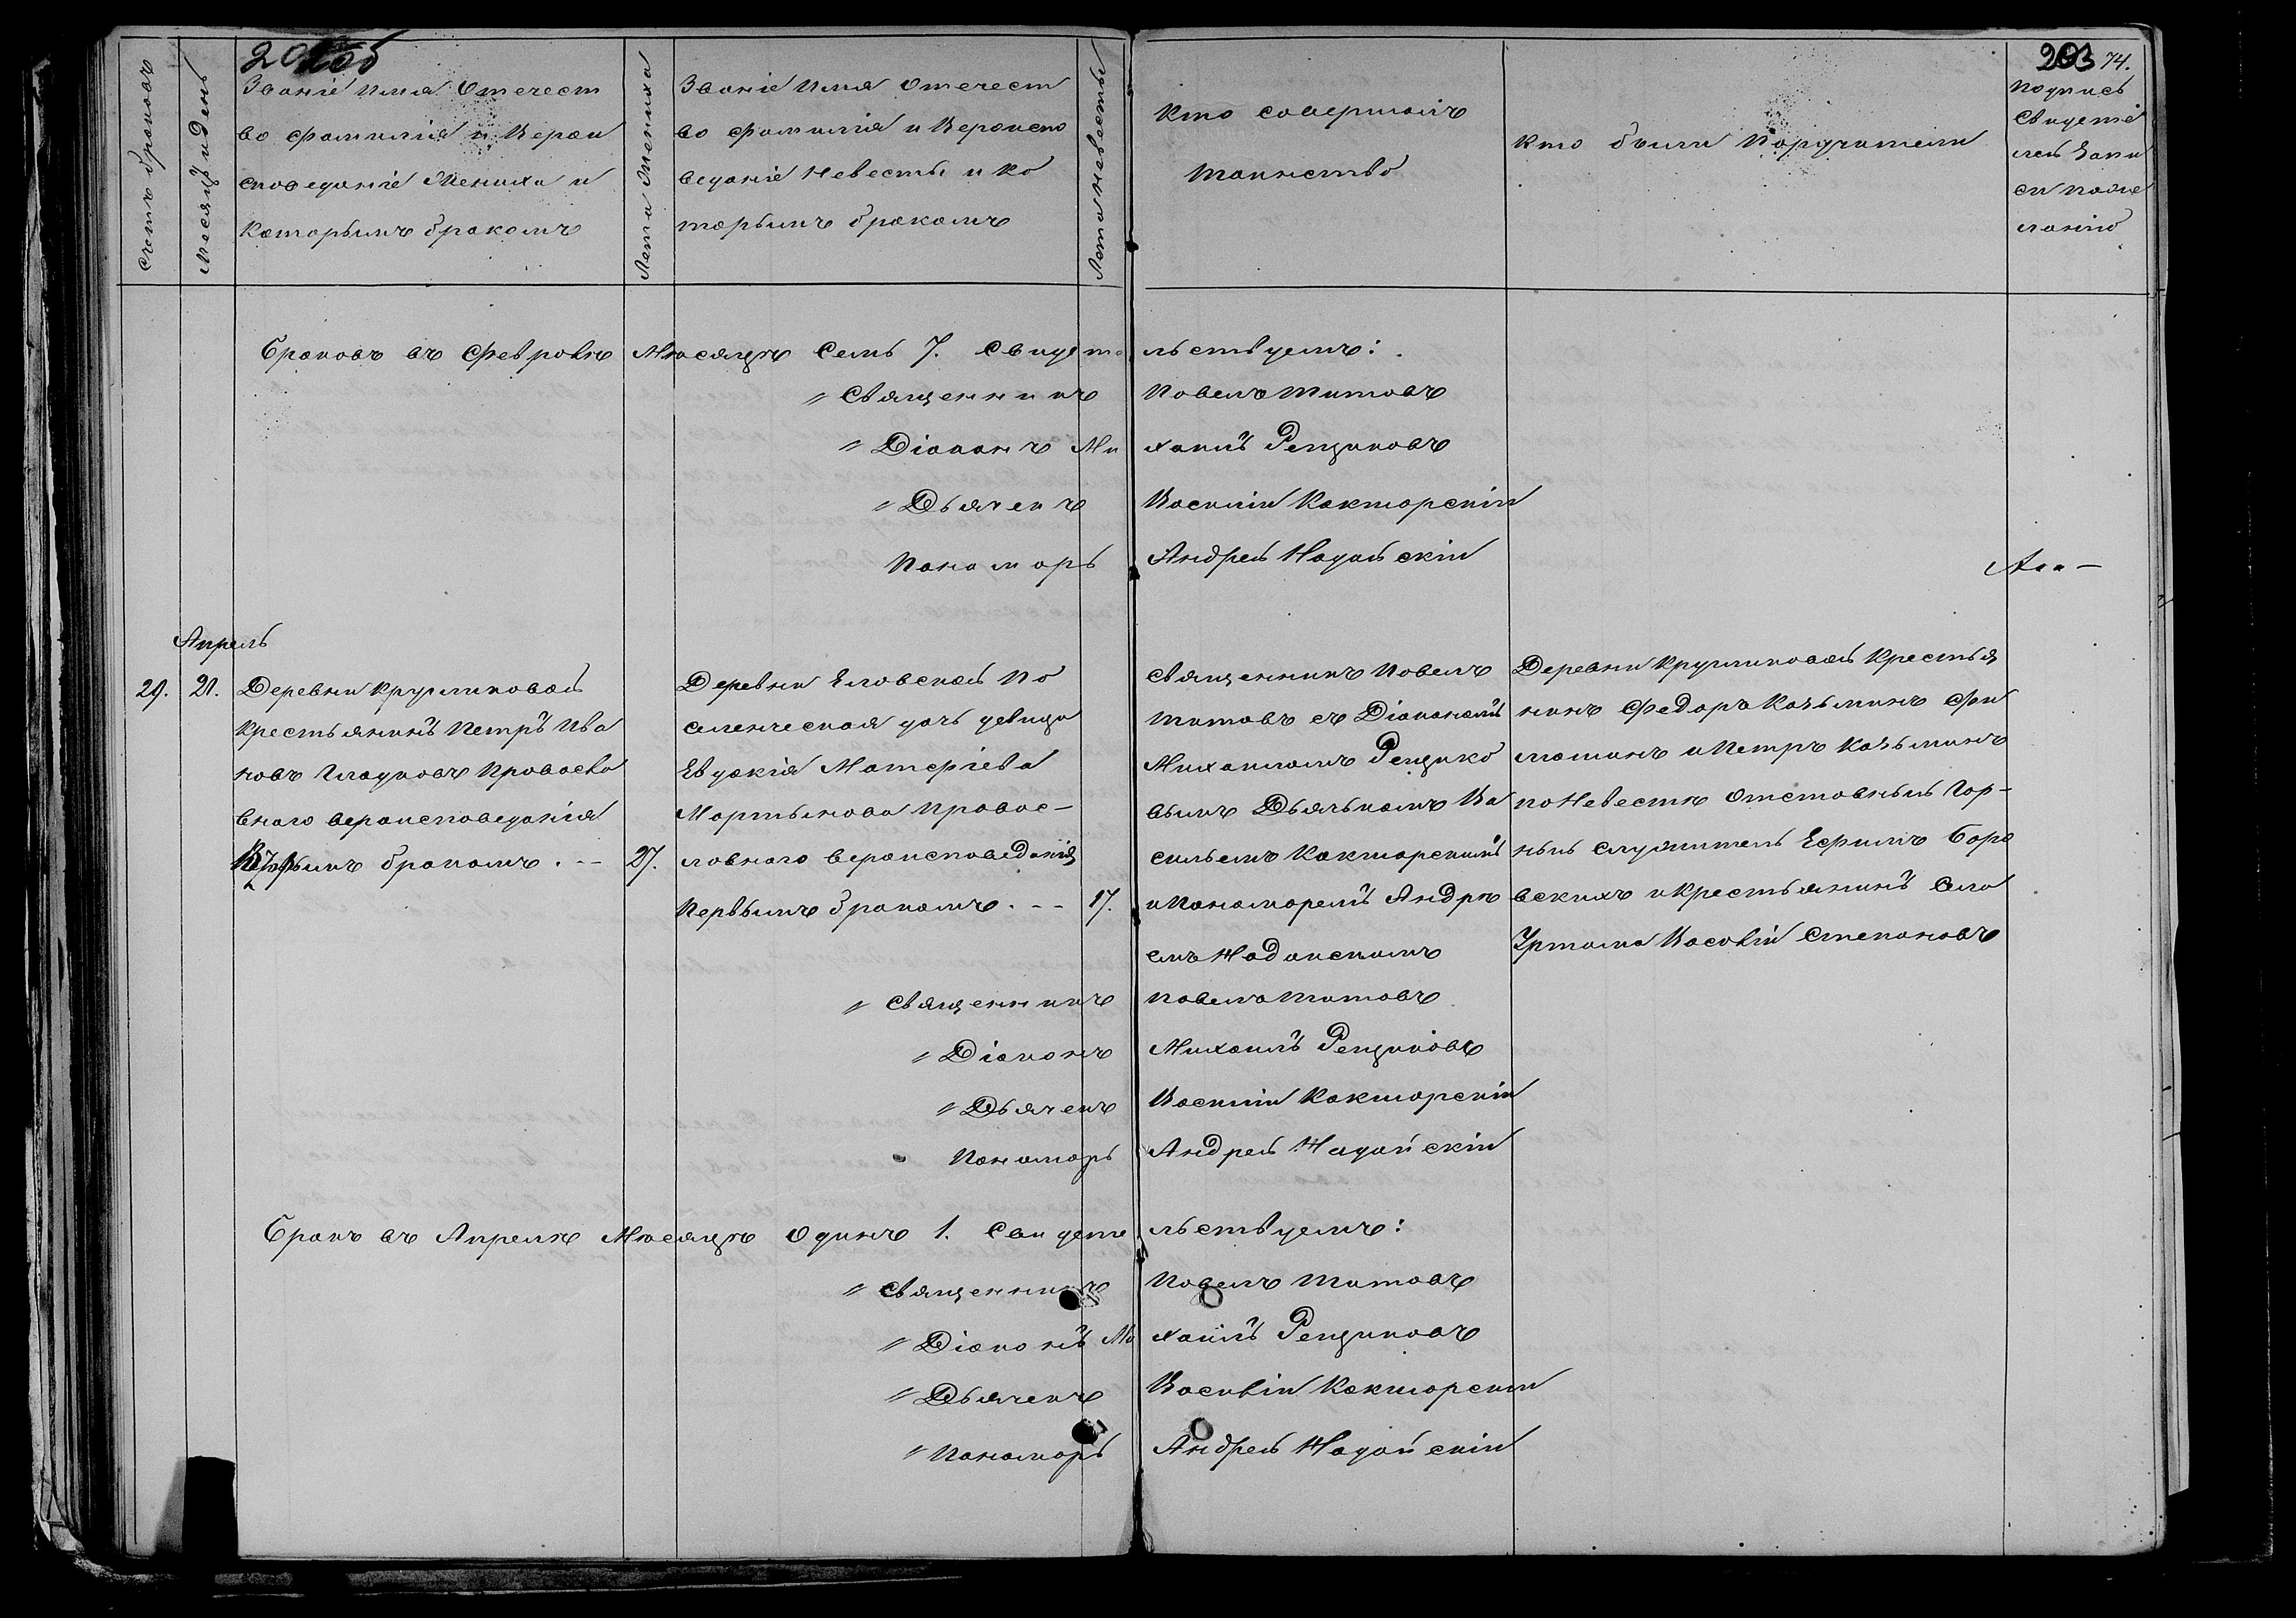 203 74.
Счетъ браковъ
Месяцъ и день
Званіе Имя Отечест
во фамилія и Верои
споведаніе Жениха и
которымъ бракомъ
Лета Жениха
Званіе Имя Отечест
во фамилія и Вероиспо
веданіе Невесты и ко
торымъ бракомъ
Лета невесты
Кто совершалъ
таинство
Кто были Поручители
Подпись
Свидете
лей Запи
си по же
ланію
Браковъ въ Февралѣ Мѣсяцѣ Семь 7. Свидетельствуемъ:
Священникъ Павелъ Титовъ
Діаконъ Михаилъ Рещиковъ
Дьячекъ Василій Кокшарскій
Пономарь Андрей Надайскій
Апрель
29. 21.
Деревни Кругликовой
Крестьянинъ Петръ Ива
новъ Гладковъ Правосла
внаго вероисповеданія
бракомъ. -- 27.
Деревни Еловской По
селенческая дочь девица
Евдокія Матѳѣева
Мартынова Правос-
лавнаго вероисповеданія
Первымъ бракомъ. -- 17.
Священникъ Павелъ
Титовъ съ Діакономъ
Михаиломъ Рещико
вымъ Дьячькомъ Ва
сильемъ Кокшарскимъ
и Пономаремъ Андрѣ
емъ Надаискимъ
Деревни Кругликовой Крестья
нинъ Федоръ Козьминъ Фи
латинъ и Петръ Козьминъ
по Невестѣ Отставный Гор-
ный служитель Ефимъ Боро
вскихъ и Крестьянинъ Села
Уртама Василій Степановъ
Священникъ Павелъ Титовъ
Діаконъ Михаилъ Рещиковъ
Дьячекъ Василій Кокшарскій
Пономарь Андрей Надайскій
Бракъ въ Апрелѣ Мѣсяцѣ Одинъ 1. Свидетельствуемъ:
Священникъ Павелъ Титовъ
Діаконъ Михаилъ Рещиковъ
Дьячекъ Василій Кокшарскій
Пономарь Андрей Надайскій